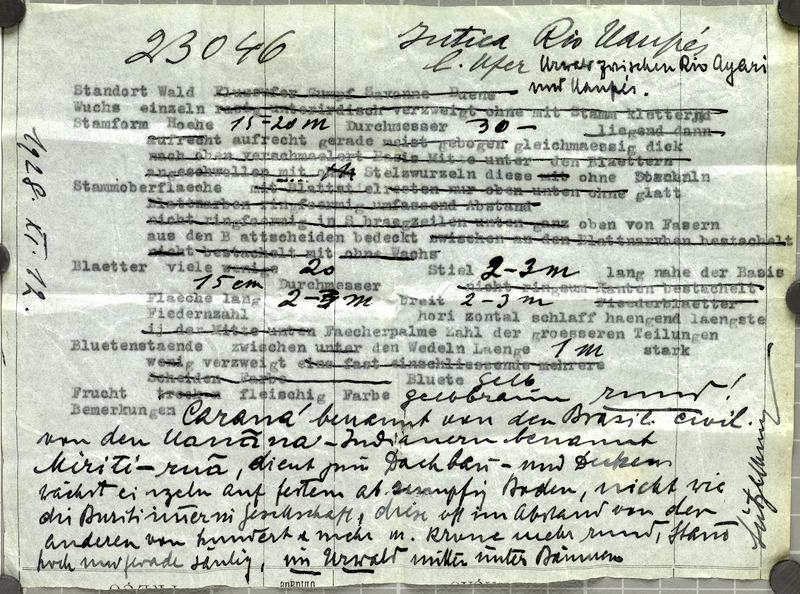 23046
Jutica Rio Uaupés
l. Ufer Urwald zwischen Rio Ayari
und Uaupés.
Standort Wald Flussufer Sumpf Savanne Duene
Wuchs einzeln rasig unterirdisch verzweigt ohne mit Stamm kletternd
Stamform Hoehe 15-20 m Durchmesser 30- liegend dann
aufrecht aufrecht gerade meist gebogen gleichmaessig dick
nach oben verschmaelert Basis Mitte unter den Blaettern
angeschwollen mit Stelzwurzeln diese mit ohne Stacheln
Stammoberflaeche mit Blattstielresten nur oben unten ohne glatt
Blattnarben ringfoermig umfassend Abstand
nicht ringfoermig in S hraegzeilen unten ganz oben von Fasern
aus den B attscheiden bedeckt zwischen an den Blattnarben bestachelt
nicht bestachelt mit ohne Wachs
Blaetter viele wenige 20 Stiel 2-3 m lang nahe der Basis
15 cm Durchmesser nicht ringsum Kanten bestachelt
Flaeche lang 2-3 m breit 2-3 m Fiederblaetter
Fiedernzahl hori zontal schlaff haengend laengste
ij der Mitte unten Faecherpalme Zahl der groesseren Teilungen
Bluetenstaende zwischen unter den Wedeln Laenge 1 m stark
wenig verzweigt eine fast einschliessende mehrere
Scheiden Farbe Bluete gelb
Frucht trocken fleischig Farbe gelbbraun rund!
Bemerkungen Caraná benannt von den Brasil. civil.
von den Uanāna-Indianern benannt
Miriti-ruā, dient zum Dachbau- und Decken
wächst einzeln auf festem ab. sumpfig Boden, nicht wie
die Buriti immer in Gesellschaft, diese oft im Abstand von der
anderen von hundert & mehr m. Krone mehr rund, Stamm
hoch und gerade säulig, im Urwald mitten unter Bäumen
1928. XI. 12.